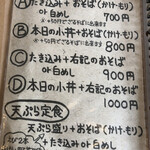 Ⓐたき込み+おそば(かけ・もり)
or 白めし 700円
Ⓑ本日の小丼+おそば(かけ・もり)
800円
Ⓒたき込み+右記のおそば
or 白めし 900円
Ⓓ本日の小丼+右記のおそば
1000円
天ぷら定食
天ぷら盛り+おそば(かけ・もり)